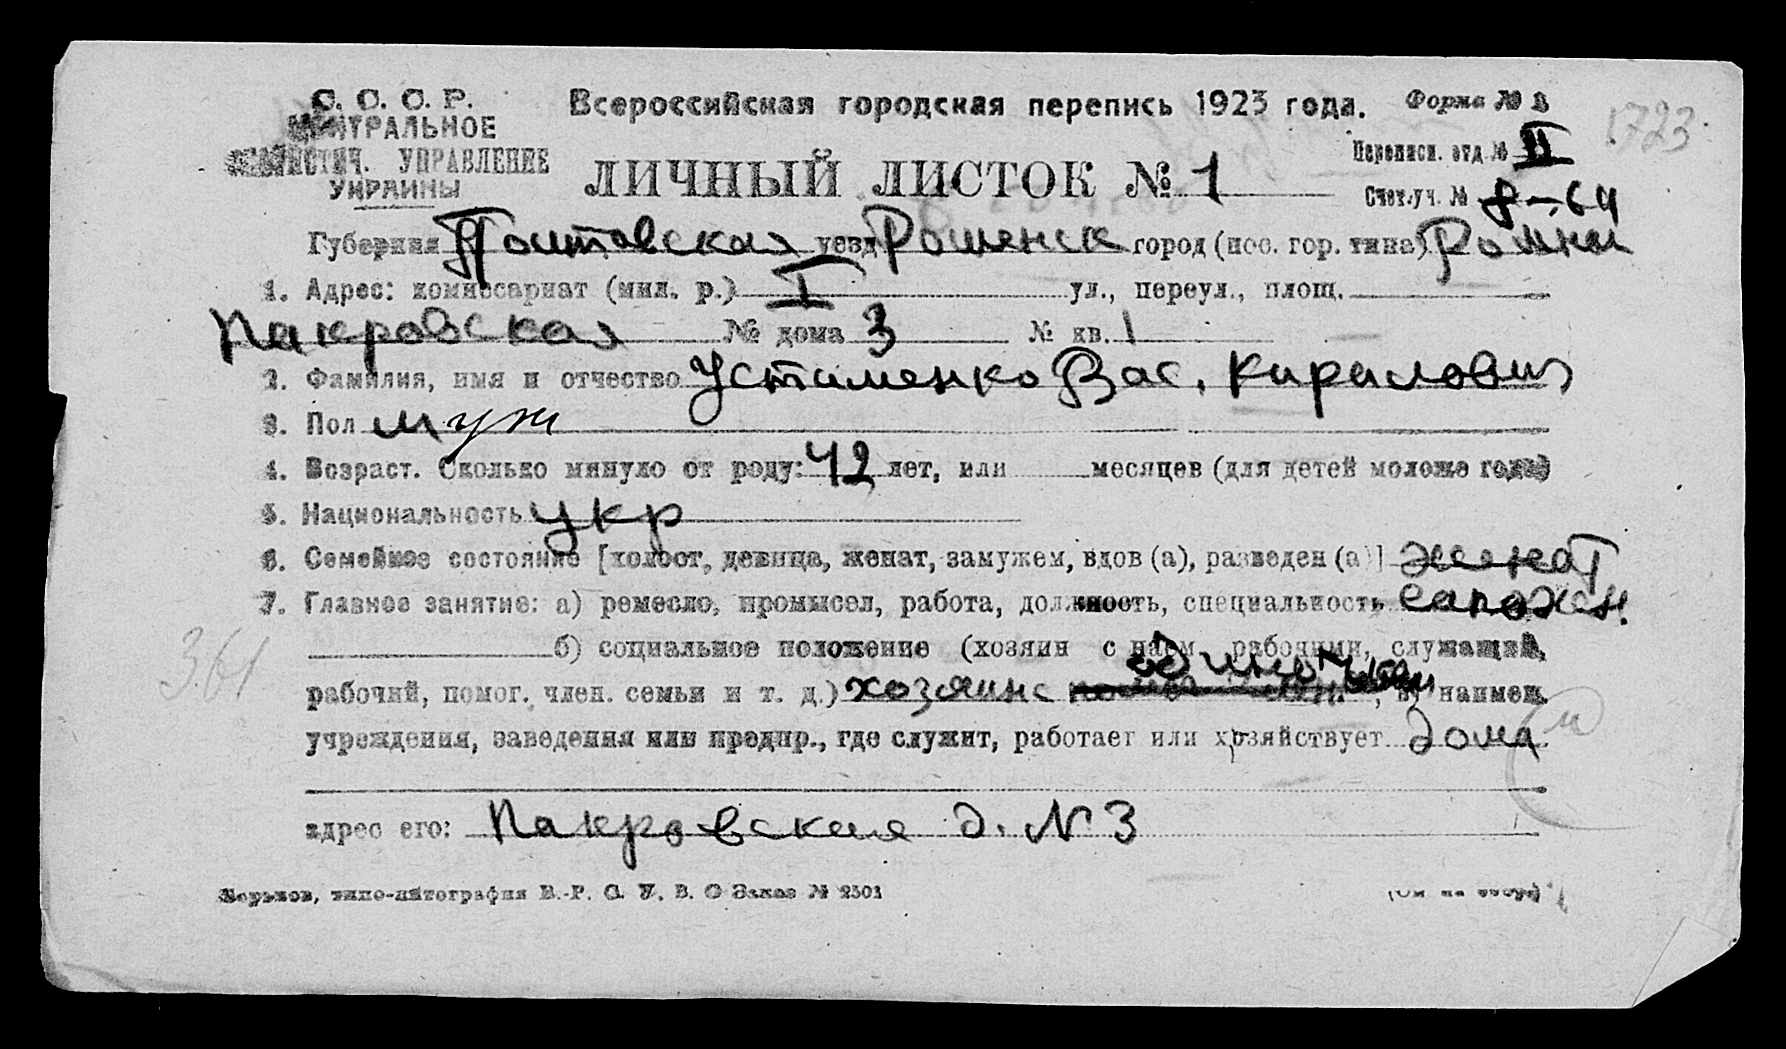 С. С. С. Р. Всероссийская городская перепись 1923 года. Форма № 2
ЦЕНТРАЛЬНОЕ 1723
СТАТИСТИЧ. УПРАВЛЕНИЕ Переписн. отд. № II
УКРАИНЫ ЛИЧНЫЙ ЛИСТОК № 1 Счет. уч. № 8-64
Губерния Полтавская уезд Роменск город (пос. гор. типа) Ромны
1. Адрес: комиссариат (мил. р.) I ул., переул., площ.
Пакровская № дома 3 № кв. 1
2. Фамилия, имя и отчество Устименко Вас. Кирилович
3. Пол муж
4. Возраст. Сколько минуло от роду: 42 лет, или месяцев (для детей моложе года)
5. Национальность укр
6. Семейное состояние [холост, девица, женат, замужем, вдов (а), разведен (а)] женат
7. Главное занятие: а) ремесло, промысел, работа, должность, специальность сапожн.
б) социальное положение (хозяин с наем. рабочими, служащий,
рабочий, помог. член. семьи и т. д.) хозяин одиночка, в) наимен.
учреждения, заведения или предпр., где служит, работает или хозяйствует дома
адрес его: Пакровская д. N 3
361
Харьков, типо-литография В.-Р. С. У. В. О Заказ № 2501